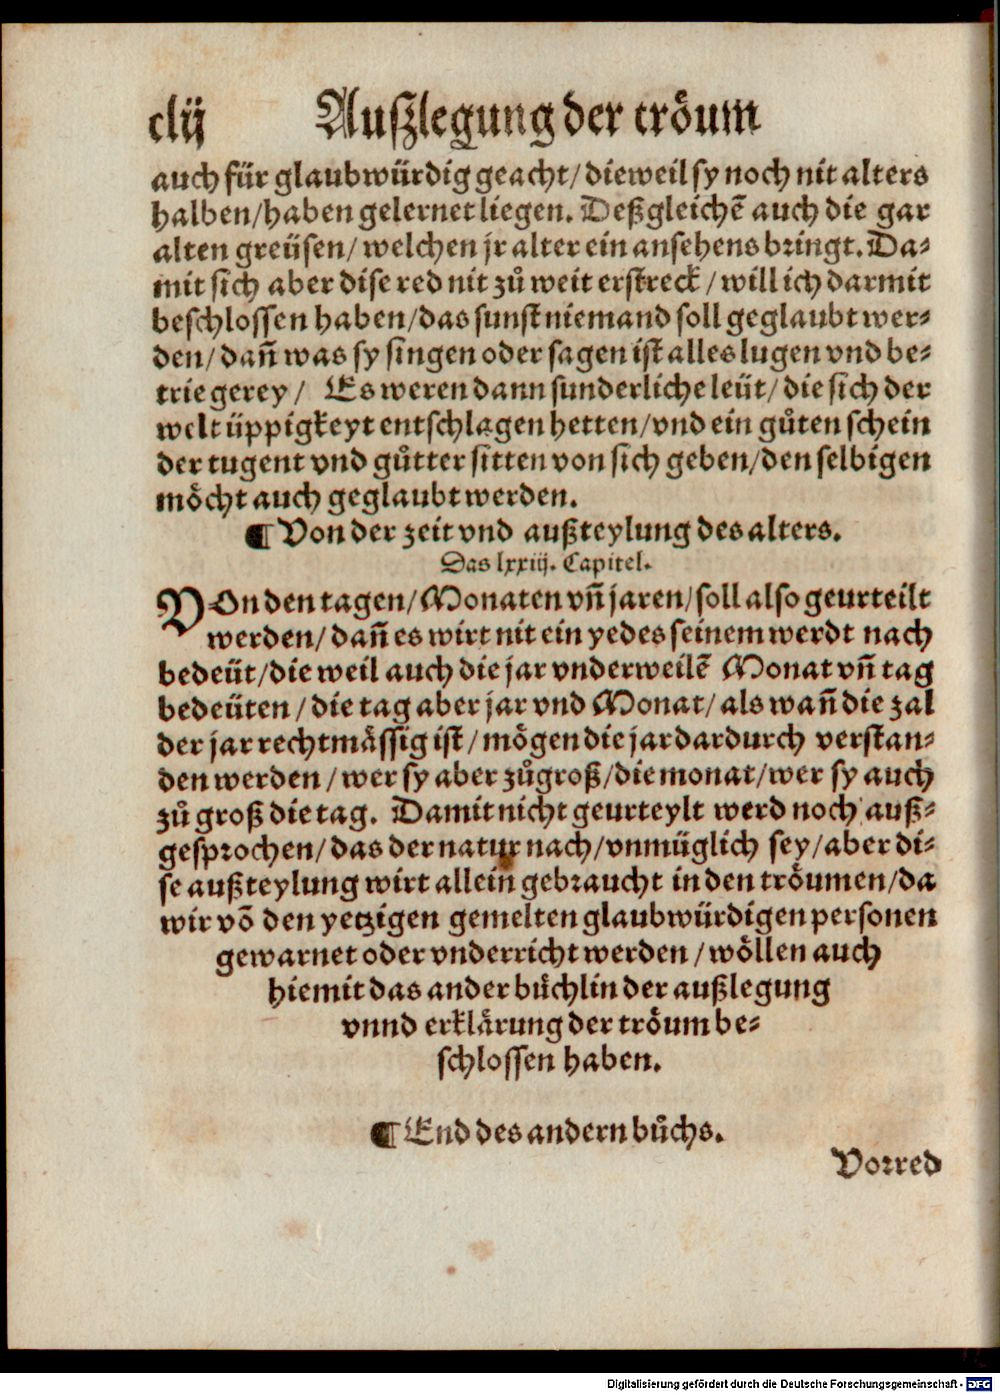 clij Auſzlegung der tröum
auch für glaubwürdig geacht/ dieweil sy noch nit alters
halben/haben gelernet liegen. Deßgleichẽ auch die gar
alten greüsen/ welchen jr alter ein ansehens bringt. Da⸗
mit sich aber dise red nit zů weit erstreck / will ich darmit
beschlossen haben/das sunst niemand soll geglaubt wer⸗
den/ dañ was sy singen oder sagen ist alles lugen vnd be⸗
triegerey / Es weren dann sunderliche leüt/ die sich der
welt üppigkeyt entschlagen hetten/vnd ein gůten schein
der tugent vnd gůtter sitten von sich geben/den selbigen
möcht auch geglaubt werden.
¶ Von der zeit vnd außteylung des alters.
Das lxxiij. Capitel.
VOn den tagen/ Monaten vñ jaren/ soll also geurteilt
werden/ dañ es wirt nit ein yedes seinem werdt nach
bedeüt/die weil auch die jar vnderweilẽ Monat vñ tag
bedeüten / die tag aber jar vnd Monat/ als wañ die zal
der jar rechtmässig ist / mögen die jar dardurch verstan⸗
den werden / wer sy aber zůgroß/die monat/wer sy auch
zů groß die tag. Damit nicht geurteylt werd noch auß⸗
gesprochen/ das der natur nach/vnmüglich sey/aber di⸗
se außteylung wirt allein gebraucht in den tröumen/da
wir võ den yetzigen gemelten glaubwürdigen personen
gewarnet oder vnderricht werden / wöllen auch
hiemit das ander büchlin der außlegung
vnnd erklärung der tröum be⸗
schlossen haben.
¶ End des andern bůchs.
Vorred
Digitalisierung gefördert durch die Deutsche Forschungsgemeinschaft - DFG